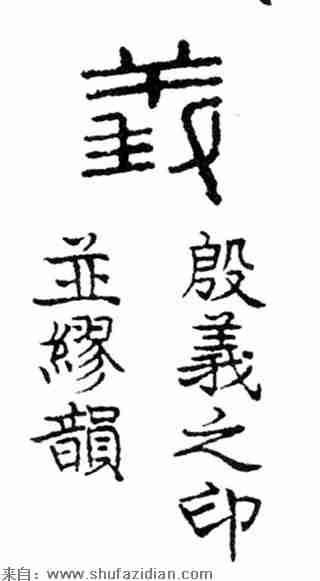 義
殷義之印
並繆韻
来自：www.shufazidian.com